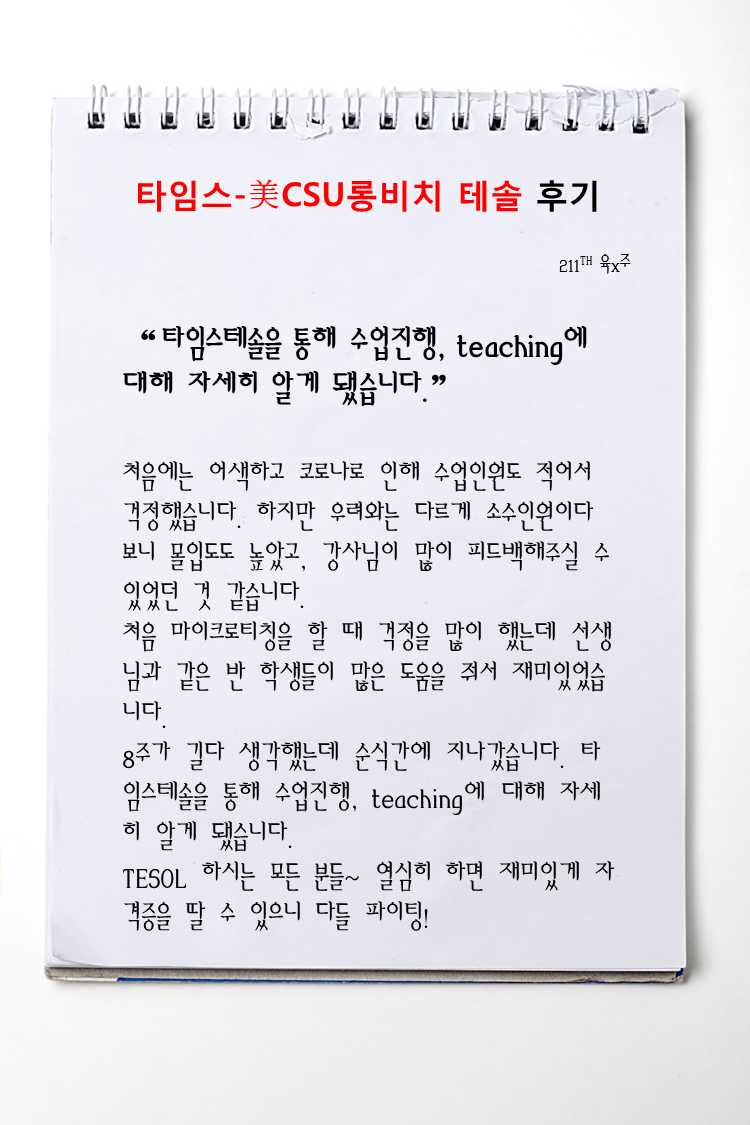 타임스-美CSU롱비치 테솔 후기
211TH 육x주
“타임스테솔을 통해 수업진행, teaching에
대해 자세히 알게 됐습니다.”
처음에는 어색하고 코로나로 인해 수업인원도 적어서
걱정했습니다. 하지만 우려와는 다르게 소수인원이다
보니 몰입도도 높았고, 강사님이 많이 피드백해주실 수
있었던 것 같습니다.
처음 마이크로티칭을 할 때 걱정을 많이 했는데 선생
님과 같은 반 학생들이 많은 도움을 줘서 재미있었습
니다.
8주가 길다 생각했는데 순식간에 지나갔습니다. 타
임스테솔을 통해 수업진행, teaching에 대해 자세
히 알게 됐습니다.
TESOL 하시는 모든 분들~ 열심히 하면 재미있게 자
격증을 딸 수 있으니 다들 파이팅!